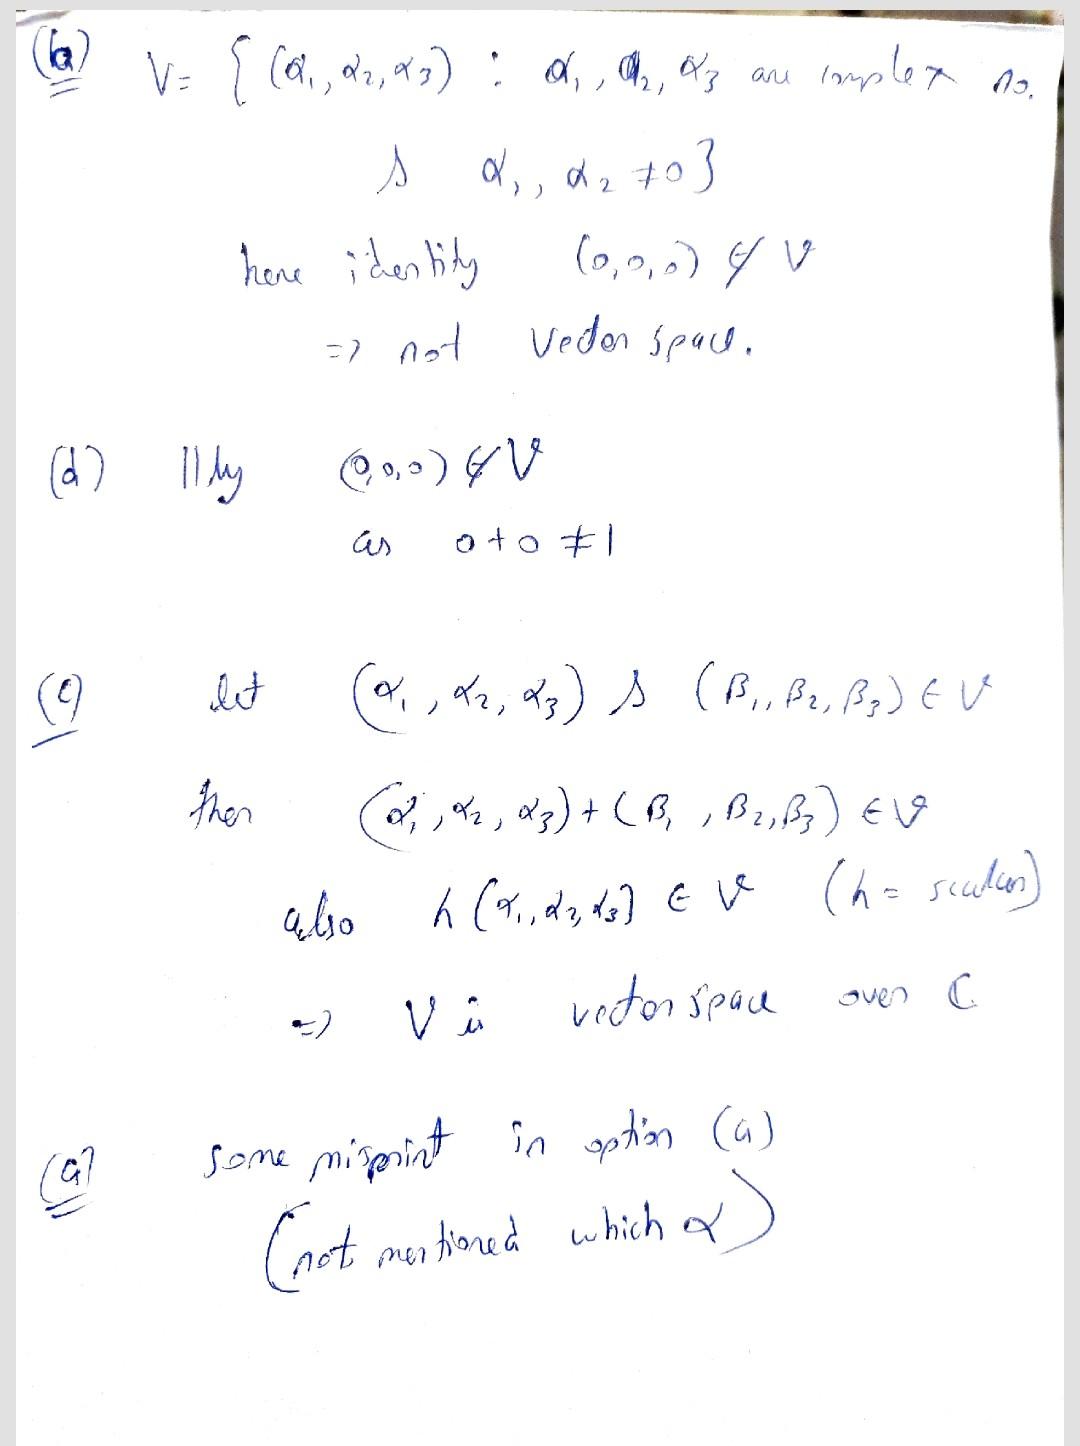 (b) V = { (α₁, α₂, α₃) : α₁, α₂, α₃ are complex no.
& α₁, α₂ ≠ 0 }
here identity (0,0,0) ∉ V
=> not vector space.
(d) |||ly (0,0,0) ∉ V
as 0 + 0 ≠ 1
(c) let (α₁, α₂, α₃) & (β₁, β₂, β₃) ∈ V
then (α₁, α₂, α₃) + (β₁, β₂, β₃) ∈ V
also h (α₁, α₂, α₃) ∈ V (h = scalar)
=> V is vector space over C
(a) some misprint in option (a)
(not mentioned which α)